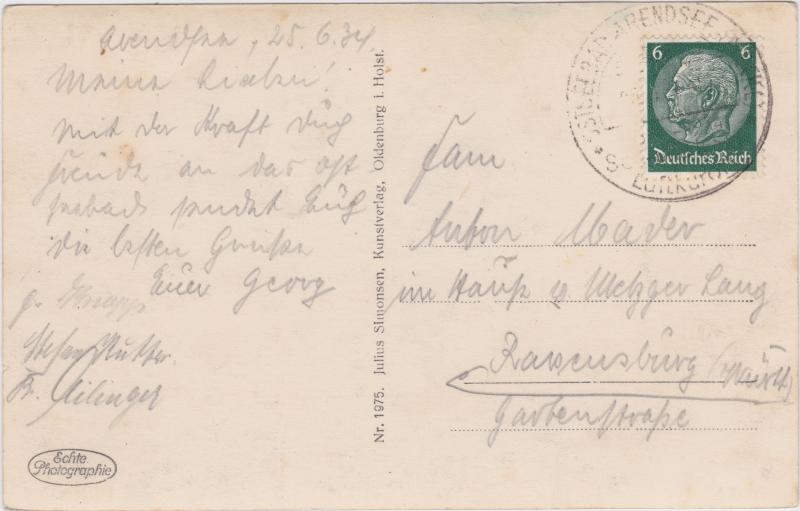 Arendsee, 25.6.34.
Meine Lieben!
Mit der Kraft durch
Freude an das Ost
seebad sendet Euch
die besten Grüße
Euer Georg
Stefan Rutter.
Fr. Eilinger
Echte
Photographie
Nr. 1975. Julius Simonsen, Kunstverlag, Oldenburg i. Holst.
ARENDSEE
Luftkurort
6 6
Deutsches Reich
Fam
Anton Mader
im Hause v Metzger Lang
Ravensburg (Württ)
Gartenstraße